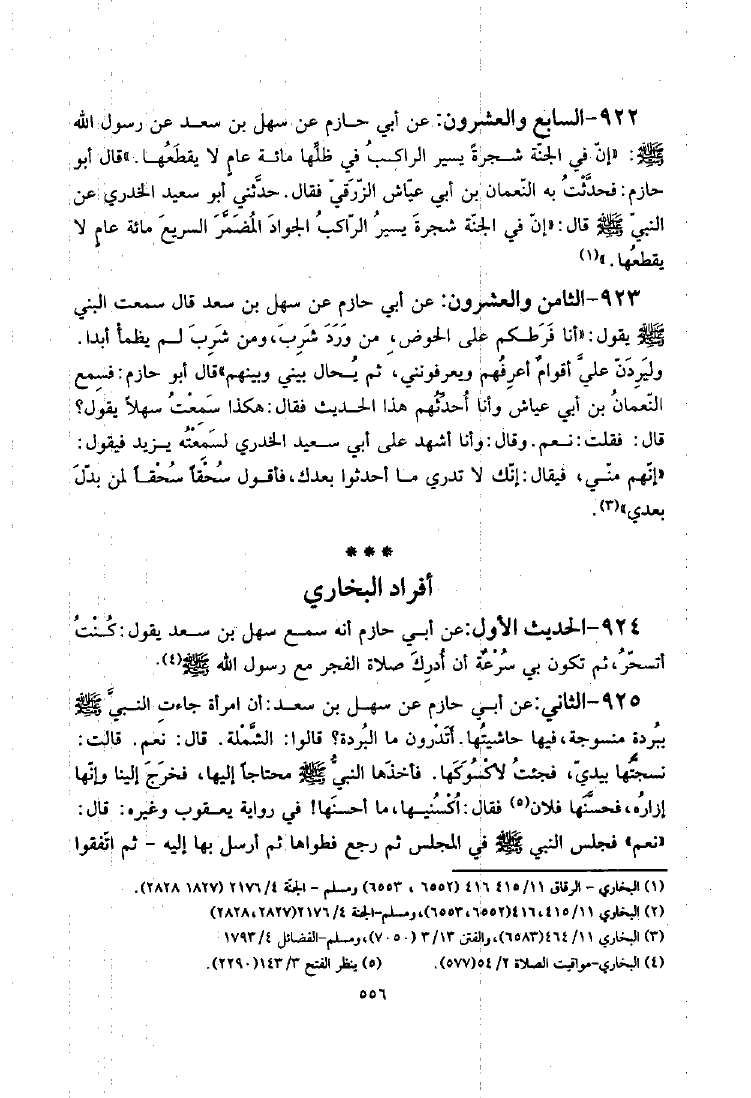 ٩٢٢-السابع والعشرون: عن أبي حازم عن سهل بن سعد عن رسول الله
ﷺ: «إنّ في الجنّة شجرةً يسير الراكبُ في ظلّها مائة عام لا يقطَعُها.»قال أبو
حازم: فحدّثْتُ به النّعمان بن أبي عيّاش الزّرَقيّ فقال. حدثّني أبو سعيد الخدري عن
النبيّ ﷺ قال: «إنّ في الجنّة شجرةً يسيرُ الرّاكبُ الجوادَ المُضَمَّرَ السريعَ مائة عام لا
يقطعُها.»(١)
٩٢٣-الثامن والعشرون: عن أبي حازم عن سهل بن سعد قال سمعت البني
ﷺ يقول: «أنا فَرَطكم على الحوض، من وَرَدَ شَرِبَ، ومن شَرِبَ لـم يظمأ أبدا.
وليَرِدَنّ عليَّ أقوامٌ أعرِفُهم ويعرفونني، ثم يُحال بيني وبينهم»قال أبو حازم: فسمع
النّعمانُ بن أبي عياش وأنا أُحدّثُهم هذا الحديث فقال: هكذا سَمِعْتُ سهلاً يقول؟
قال: فقلت: نعم. وقال: وأنا أشهد على أبي سعيد الخدري لسَمِعْتُه يزيد فيقول:
«إنّهم منّي، فيقال: إنّك لا تدري ما أحدثوا بعدك، فأقول سُحْقاً سُحْقاً لمن بدّلَ
بعدي»(٣).
***
أفراد البخاري
٩٢٤-الحديث الأول: عن أبي حازم أنه سمع سهل بن سعد يقول: كُنْتُ
أتسحّرُ، ثم تكون بي سُرْعةٌ أن أُدرِكَ صلاة الفجر مع رسول الله ﷺ(٤).
٩٢٥-الثاني: عن أبي حازم عن سهل بن سعد: أن امرأة جاءتِ النبيَّ ﷺ
ببُردة منسوجة، فيها حاشيتُها. أتَدْرون ما البُردة؟ قالوا: الشّمْلة. قال: نعم. قالت:
نسجتُها بيديّ، فجئتُ لأكْسُوكَها. فأخذَها النبيُّ ﷺ محتاجاً إليها، فخرَجَ إلينا وإنّها
إزارُه، فحسَّنَها فلان(٥) فقال: اُكْسُنيها، ما أحسنَها! في رواية يعقوب وغيره: قال:
«نعم» فجلس النبي ﷺ في المجلس ثم رجع فطواها ثم أرسل بها إليه - ثم اتّفقوا
(١) البخاري - الرقاق ٤١٥/١١ ٤١٦ (٦٥٥٢ ، ٦٥٥٣) ومسلم - الجنّة ٢١٧٦/٤ (١٨٢٧ ٢٨٢٨).
(٢) البخاري ٤١٥/١١، ٤١٦(٦٥٥٢، ٦٥٥٣)، ومسلم-الجنة ٢١٧٦/٤(٢٨٢٧، ٢٨٢٨)
(٣) البخاري ٤٦٤/١١(٦٥٨٣)، والفتن ٣/١٣ (٧٠٥٠)، ومسلم-الفضائل ١٧٩٣/٤
(٤) البخاري-مواقيت الصلاة ٥٤/٢(٥٧٧). (٥) ينظر الفتح ١٤٣/٣(٢٢٩٠).
٥٥٦